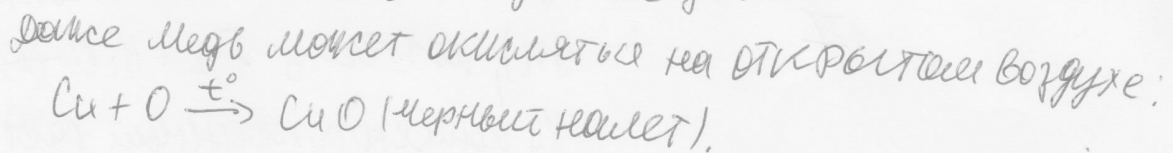 Даже медь может окисляться на открытом воздухе:
Cu + O t°→ CuO (черный налет).